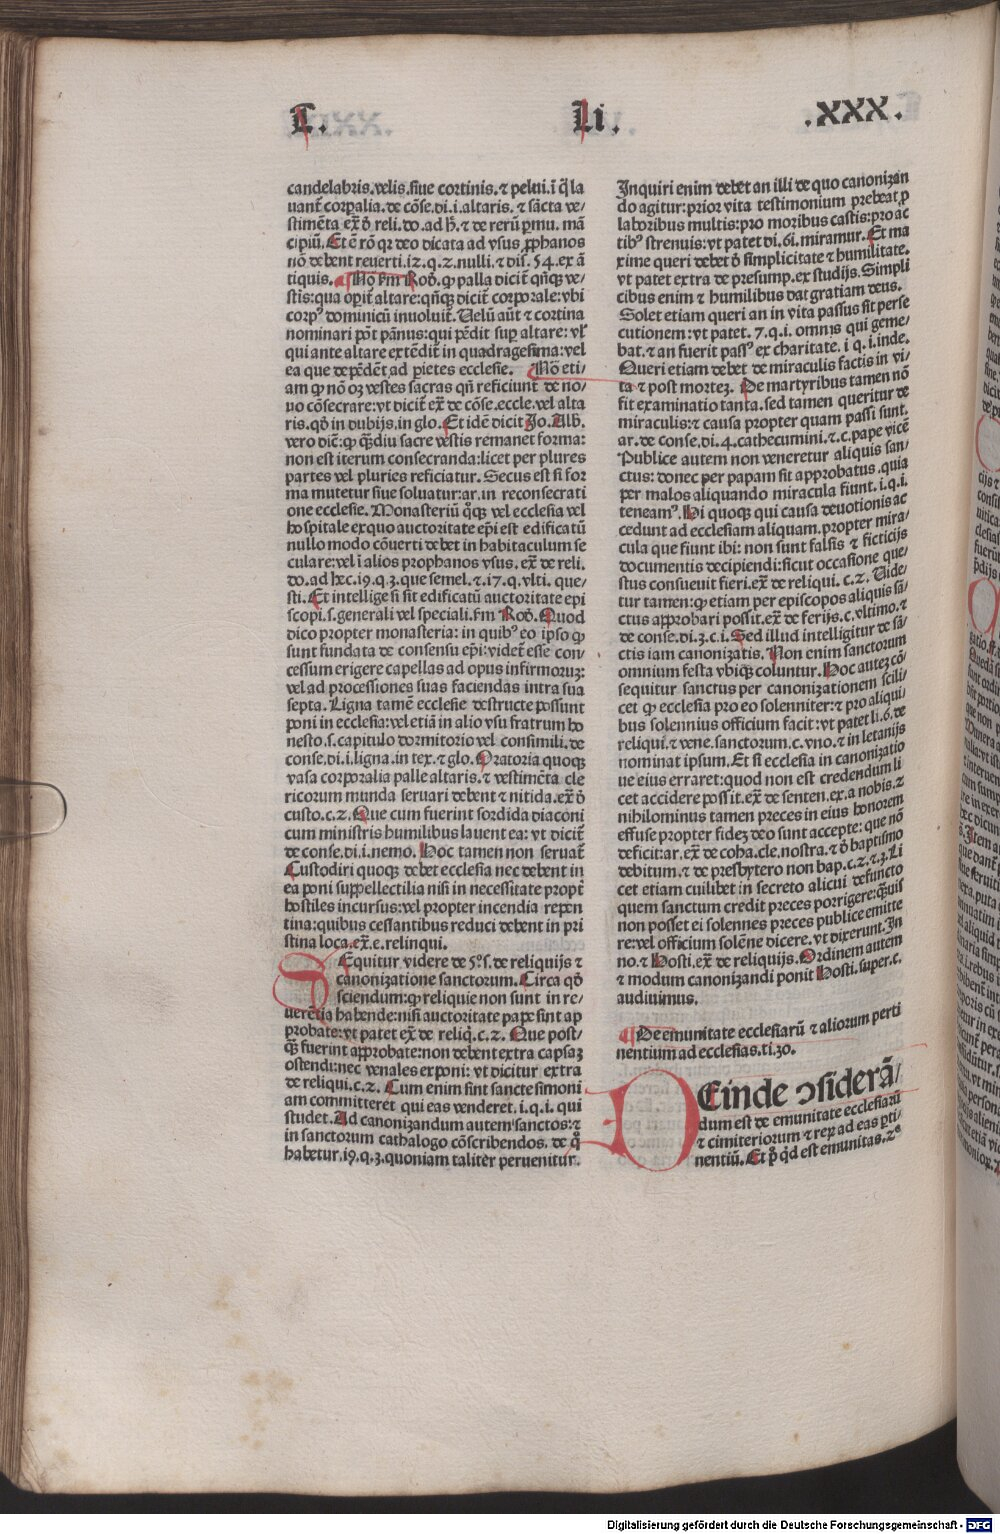 T. Li. .XXX.
candelabris.velis.siue cortinis.⁊ pelui.ĩ q̃ la
uant̃ corꝑalia.de cõse.di.i.altaris. ⁊ sãcta ve⸗
stimẽta ex̃ ð reli.do.ad h̃.⁊ de rerũ ꝑmu. mã
cipiũ.Et ẽ rõ qꝛ deo dicata ad vsus ꝓphanos
nõ debent reuerti.12.q.2.nulli.⁊ dis̃.54.ex ã
tiquis. No. ẜm Rob̃. ꝙ palla dicit̃ qñqꝫ ve⸗
stis:qua oꝑit̃ altare:qñqꝫ dicit̃ corporale:vbi
corpꝰ dominicũ inuoluit̃.Uelũ aũt ⁊ cortina
nominari põt pãnus:qui pẽdit suꝑ altare: vl̃
qui ante altare extẽdit̃ in quadragesima:vel
ea que depẽdẽt ad ꝑietes ecclesie. No. eti⸗
am ꝙ nõ oꝫ vestes sacras qñ reficiunt̃ de no⸗
uo cõsecrare:vt dicit̃ ex̃ de cõse.eccle.vel alta
ris.qð in dubijs.in glo.Et idẽ dicit Jo.Alb.
vero diẽ:ꝙ qꝫdiu sacre vestis remanet forma:
non est iterum consecranda:licet per plures
partes vel plures reficiatur. Secus est si for
ma mutetur siue soluatur:ar.in reconsecrati
one ecclesie. Monasteriũ q̃qꝫ vel ecclesia vel
hospitale exquo auctoritate ep̃i est edificatũ
nullo modo cõuerti debet in habitaculum se
culare:vel ĩ alios prophanos vsus. ex̃ de reli.
do.ad hec.19.q.3.que semel.⁊.17.q.vlti. que⸗
sti.Et intellige si sit edificatũ auctoritate epi
scopi.s.generali vel speciali.ẜm Rob̃.Quod
dico propter monasteria: in quibꝰ eo ipso ꝙ
sunt fundata de consensu ep̃i:videt̃ esse con⸗
cessum erigere capellas ad opus infirmoruꝫ:
vel ad processiones suas faciendas intra sua
septa. Ligna tamẽ ecclesie destructe possunt
poni in ecclesia:vel etiã in alio vsu fratrum ho
nesto.s.capitulo dormitorio vel consimili.de
conse.di.i.ligna.in tex.⁊ glo. Oratoria quoqꝫ
vasa corporalia palle altaris.⁊ vestimẽta cle
ricorum munda seruari debent ⁊ nitida.ex̃ ð
custo.c.2.Que cum fuerint sordida diaconi
cum ministris humilibus lauent ea: vt dicit̃
de conse.di.i.nemo. Hoc tamen non seruat̃
Custodiri quoqꝫ debet ecclesia nec debent in
ea poni suppellectilia nisi in necessitate propt̃
hostiles incursus:vel propter incendia repen
tina:quibus cessantibus reduci debent in pri
stina loca.ex̃.e.relinqui.
Equitur videre de 5°.s.de reliquijs ⁊
canonizatione sanctorum. Circa qð
sciendum:ꝙ reliquie non sunt in re⸗
uerẽtia habende:nisi auctoritate pape sint ap
probate:vt patet ex̃ de reliq̃.c.2. Que post⸗
qꝫ fuerint approbate:non debent extra capsaꝫ
ostendi:nec venales exponi: vt dicitur extra
de reliqui.c.2. Cum enim sint sancte simoni
am committeret qui eas venderet. i.q.i. qui
studet. Ad canonizandum autem sanctos:⁊
in sanctorum cathalogo cõscribendos. de q̃
habetur.19.q.3.quoniam taliter peruenitur.
Inquiri enim debet an illi de quo canonizan
do agitur:prior vita testimonium prebeat ꝓ
laboribus multis:pro moribus castis:pro ac
tibꝰ strenuis:vt patet di.61.miramur.Et ma
xime queri debet ð simplicitate ⁊ humilitate.
vt patet extra de presump.ex studijs.Simpli
cibus enim ⁊ humilibus dat gratiam deus.
Solet etiam queri an in vita passus sit perse
cutionem:vt patet. 7.q.i. omnis qui geme⸗
bat.⁊ an fuerit passꝰ ex charitate. i q.i.inde.
Queri etiam debet de miraculis factis in vi⸗
ta ⁊ post morteꝫ. De martyribus tamen nõ
fit examinatio tanta.sed tamen queritur de
miraculis:⁊ causa propter quam passi sunt.
ar.de conse.di.4.cathecumini.⁊.c.pape vicẽ
Publice autem non veneretur aliquis san⸗
ctus: donec per papam sit approbatus.quia
per malos aliquando miracula fiunt.i.q.i.
teneamꝰ.Hi quoqꝫ qui causa deuotionis ac
cedunt ad ecclesiam aliquam.propter mira⸗
cula que fiunt ibi: non sunt falsis ⁊ ficticijs
documentis decipiendi:sicut occasione que⸗
stus consueuit fieri.ex̃ de reliqui.c.2. Uide⸗
tur tamen:ꝙ etiam per episcopos aliquis sã⸗
ctus approbari possit.ex̃ de ferijs.c.vltimo.⁊
de conse.di.3.c.i. Sed illud intelligitur de sã⸗
ctis iam canonizatis. Non enim sanctorum
omnium festa vbiqꝫ coluntur. Hoc auteꝫ cõ⸗
sequitur sanctus per canonizationem scili⸗
cet ꝙ ecclesia pro eo solenniter:⁊ pro aliqui⸗
bus solennius officium facit:vt patet li.6.de
reliqui.⁊ vene.sanctorum.c.vno.⁊ in letanijs
nominat ipsum. Et si ecclesia in canonizatio
ue eius erraret:quod non est credendum li
cet accidere possit.ex̃ de senten.ex.a nobis.2
nihilominus tamen preces in eius honorem
effuse propter fideꝫ deo sunt accepte: que nõ
deficit:ar.ex̃ de coha.cle.nostra.⁊ ð baptismo
debitum.⁊ de presbytero non bap.c.2.⁊.3.Li
cet etiam cuilibet in secreto alicui defuncto
quem sanctum credit preces porrigere:qꝫuis
non posset ei solennes preces publice emitte
re:vel officium solẽne dicere.vt dixerunt.In
no.⁊ Hosti.ex̃ de reliquijs.Ordinem autem
⁊ modum canonizandi ponit Hosti.super.c.
audiuimus.
¶De emunitate ecclesiarũ ⁊ aliorum perti
nentium ad ecclesias.ti.30.
DEinde ↄsiderã⸗
dum est de emunitate ecclesiarũ
⁊ cimiteriorum ⁊ reꝝ ad eas ꝑti⸗
nentiũ. Et p̃ q̃d est emunitas.2°
Digitalisierung gefördert durch die Deutsche Forschungsgemeinschaft - DFG